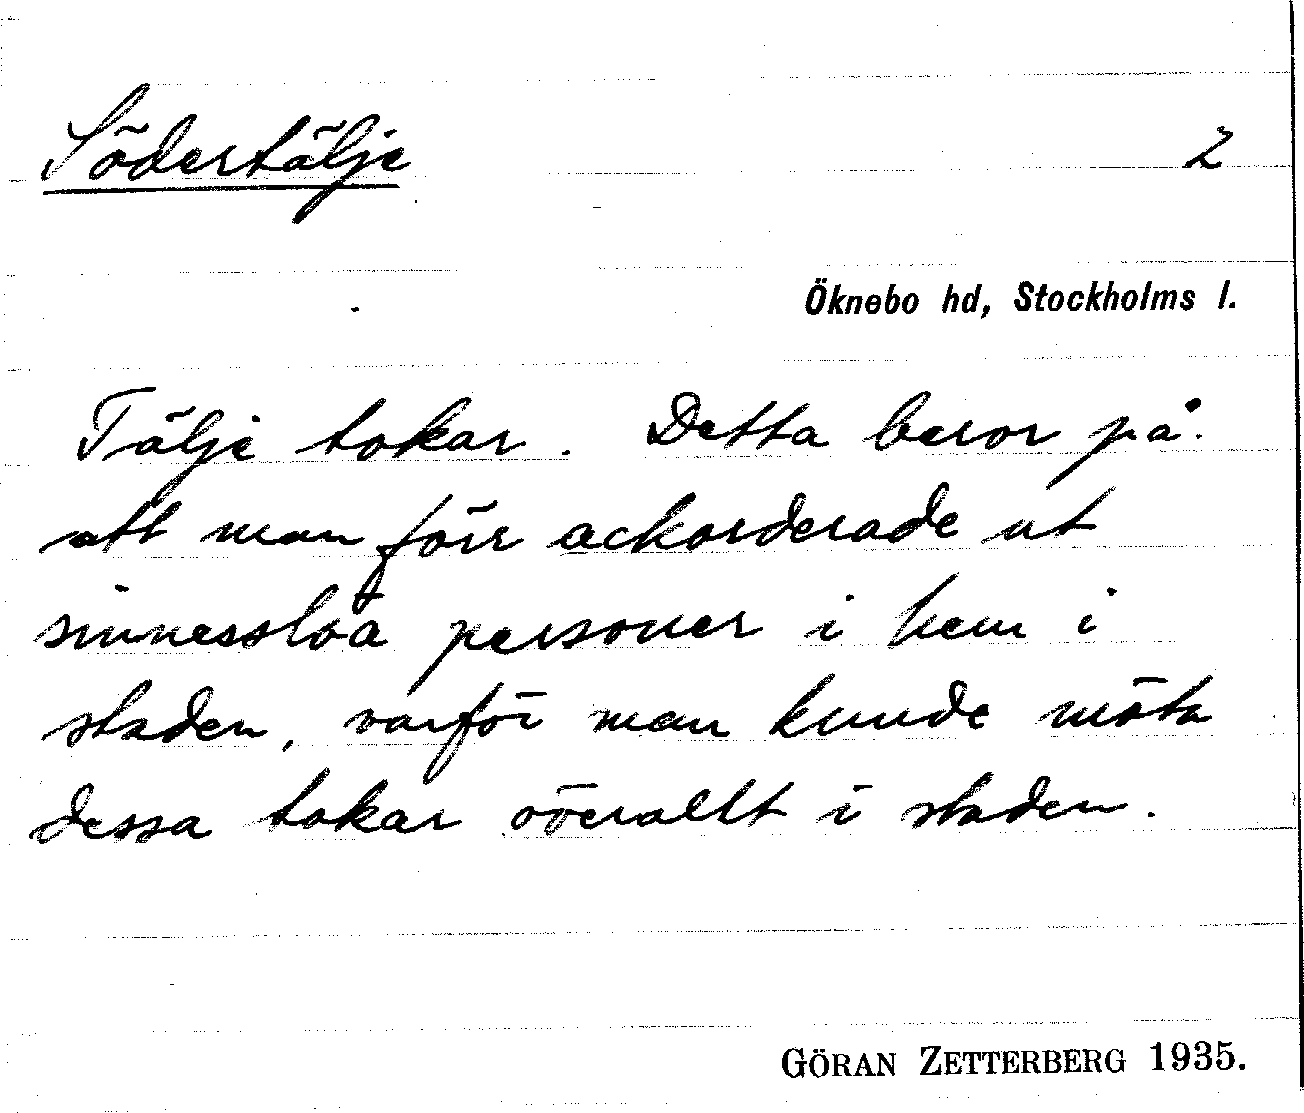 Södertälje 2
Öknebo hd, Stockholms l.
Tälje tokar. Detta beror på
att man förr ackorderade ut
sinnesslöa personer i hem i
staden, varför man kunde möta
dessa tokar överallt i staden.
GÖRAN ZETTERBERG 1935.